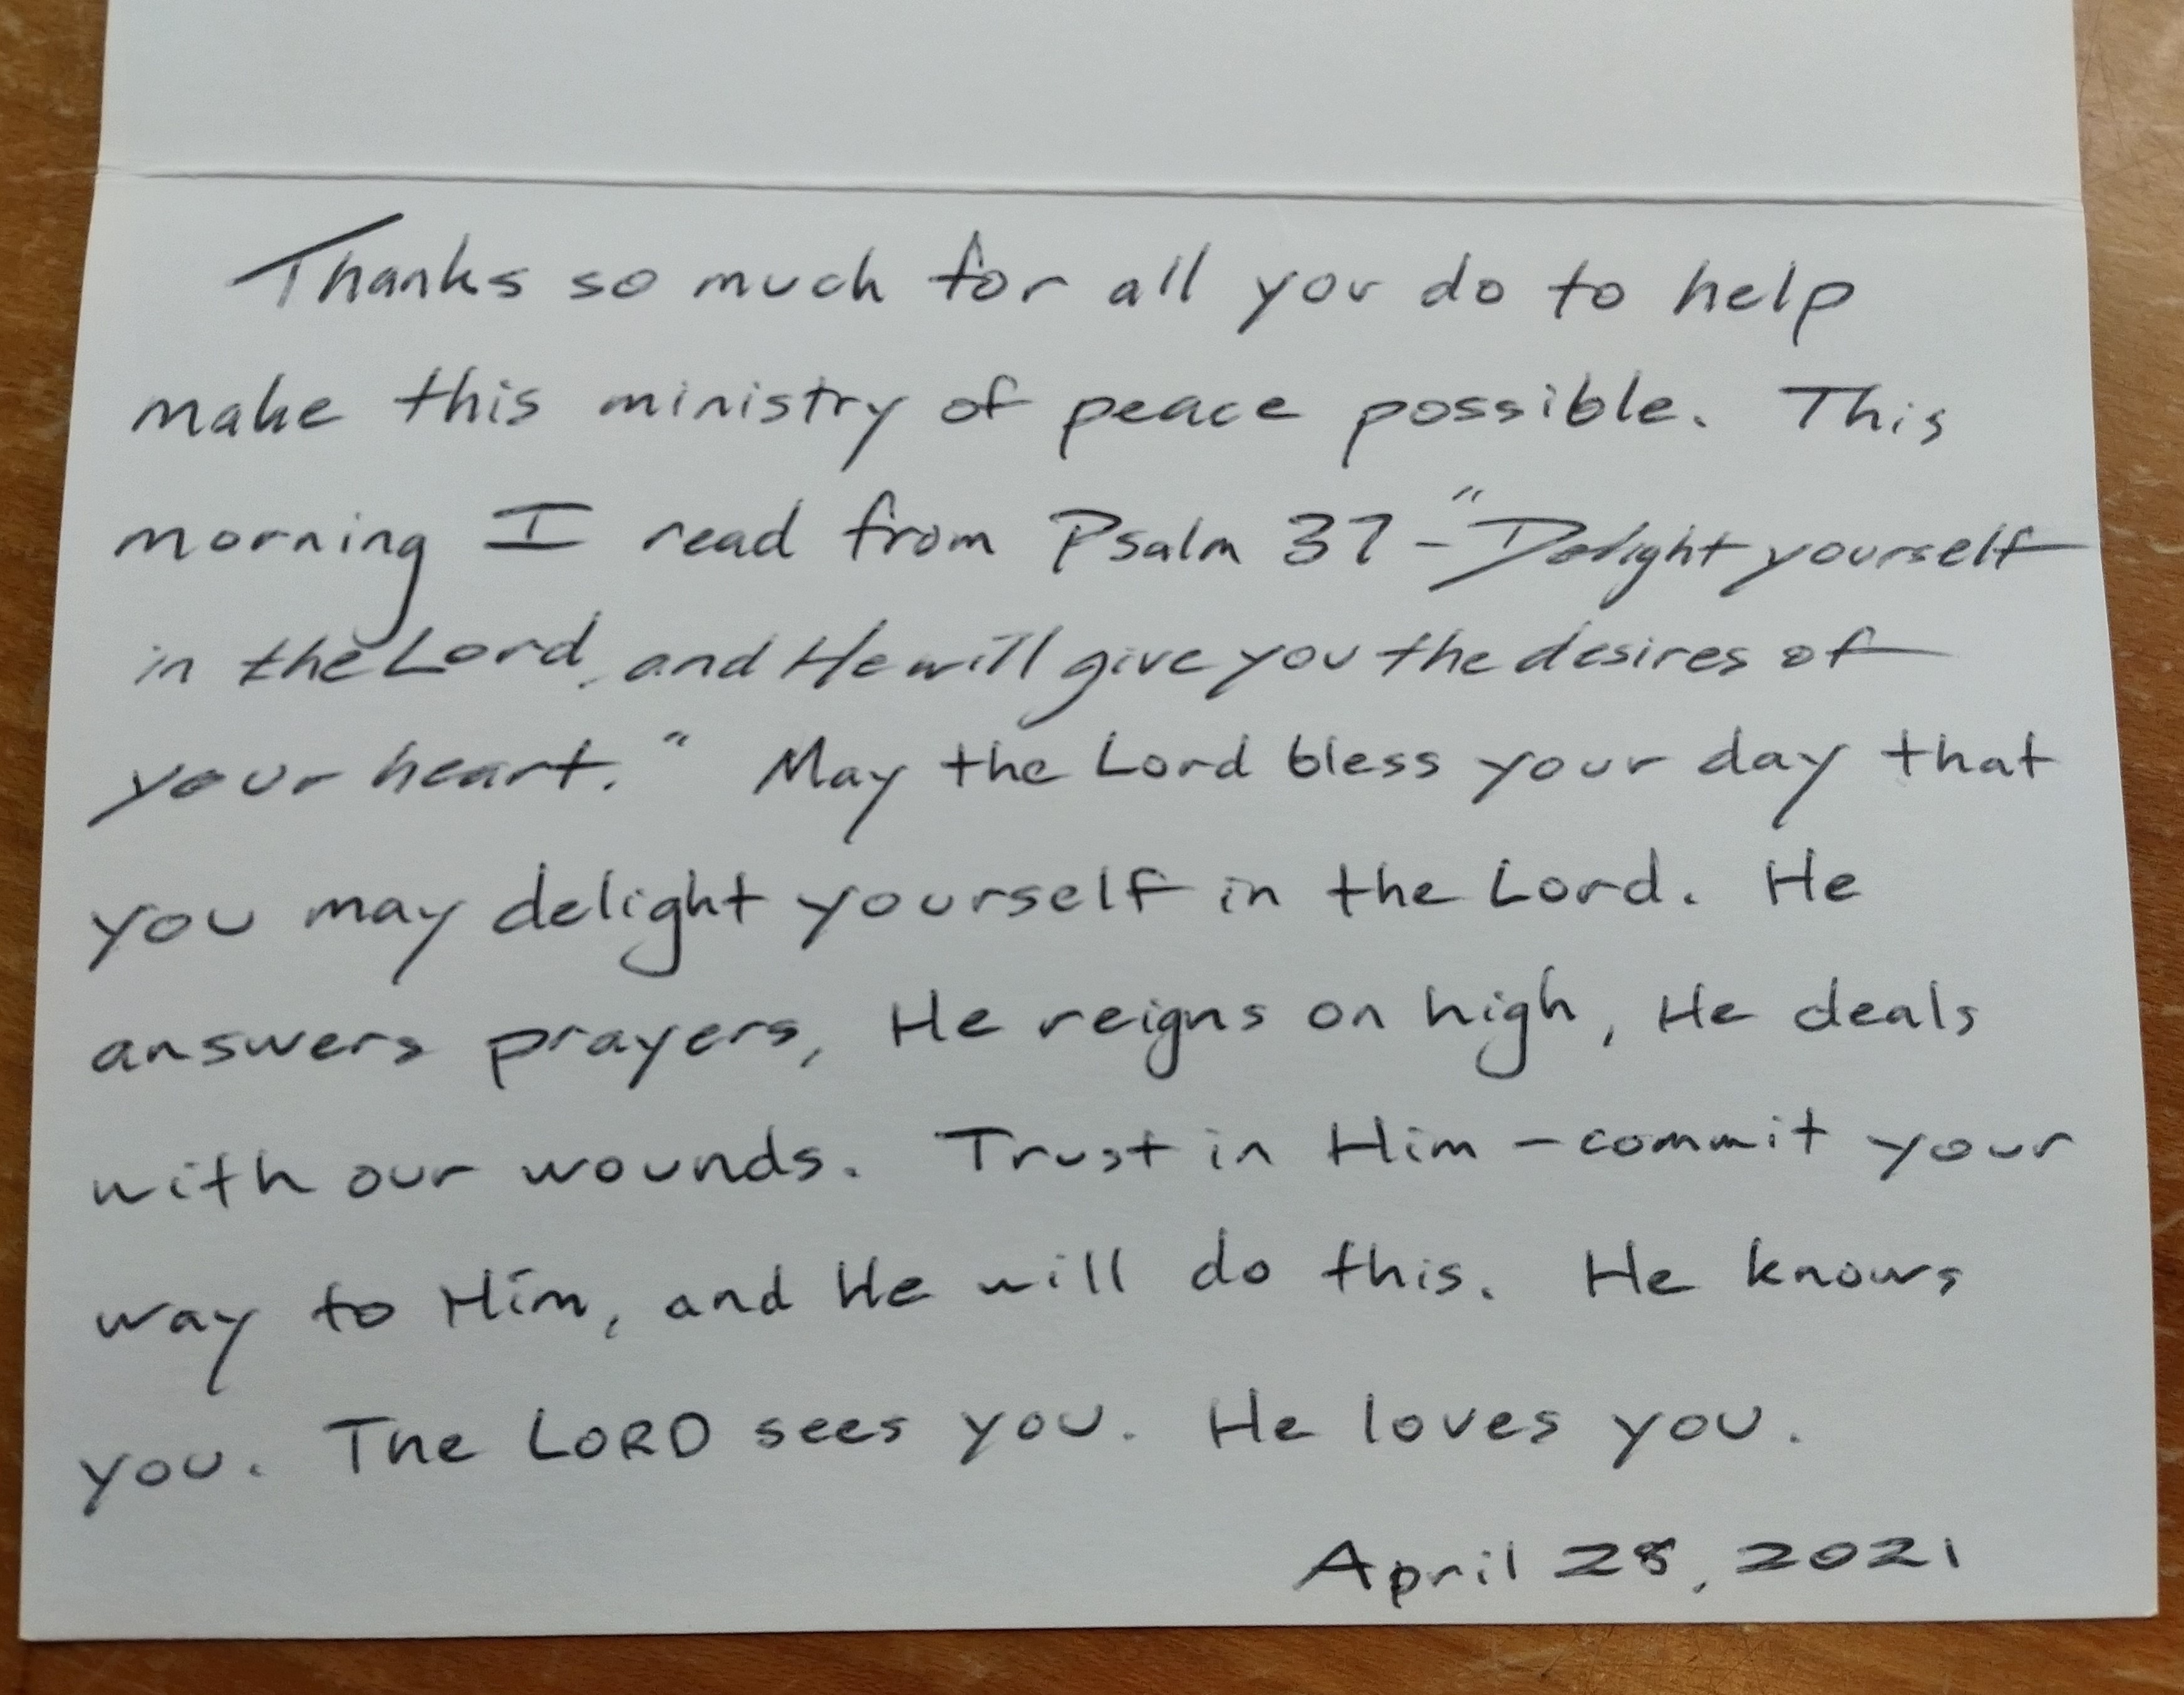 Thanks so much for all you do to help
make this ministry of peace possible. This
morning I read from Psalm 37 - "Delight yourself
in the Lord, and He will give you the desires of
your heart." May the Lord bless your day that
you may delight yourself in the Lord. He
answers prayers, He reigns on high, He deals
with our wounds. Trust in Him - commit your
way to Him, and He will do this. He knows
you. The LORD sees you. He loves you.
April 28, 2021